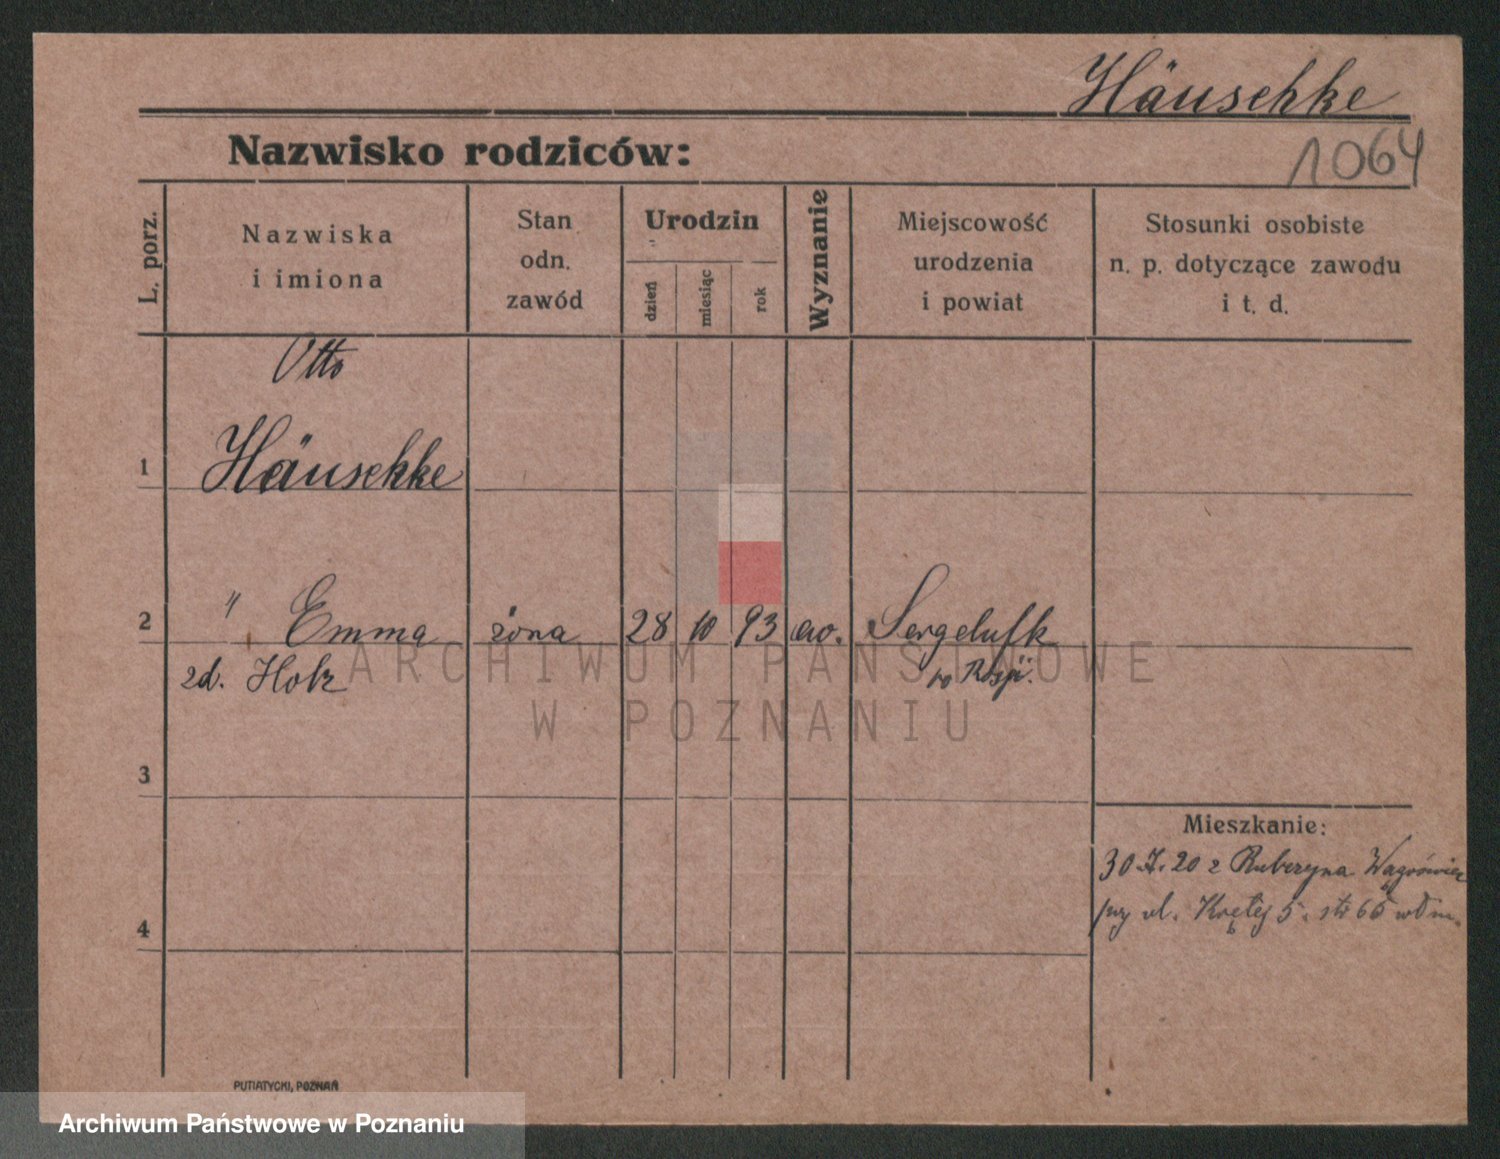 Häuschke
1064
Nazwisko rodziców:
L. porz.
Nazwiska
i imiona
Stan
odn.
zawód
Urodzin
dzień
miesiąc
rok
Wyznanie
Miejscowość
urodzenia
i powiat
Stosunki osobiste
n. p. dotyczące zawodu
i t. d.
Otto
1 Häuschke
2 " Emma żona 28 10 93 ew.
zd. Holz w Rosji.
ARCHIWUM PAŃSTWOWE
W POZNANIU
3
Mieszkanie:
30 20 z Wągrówiec
przy ul. Krętej 5. str 65
4
PUTIATYCKI, POZNAŃ
Archiwum Państwowe w Poznaniu